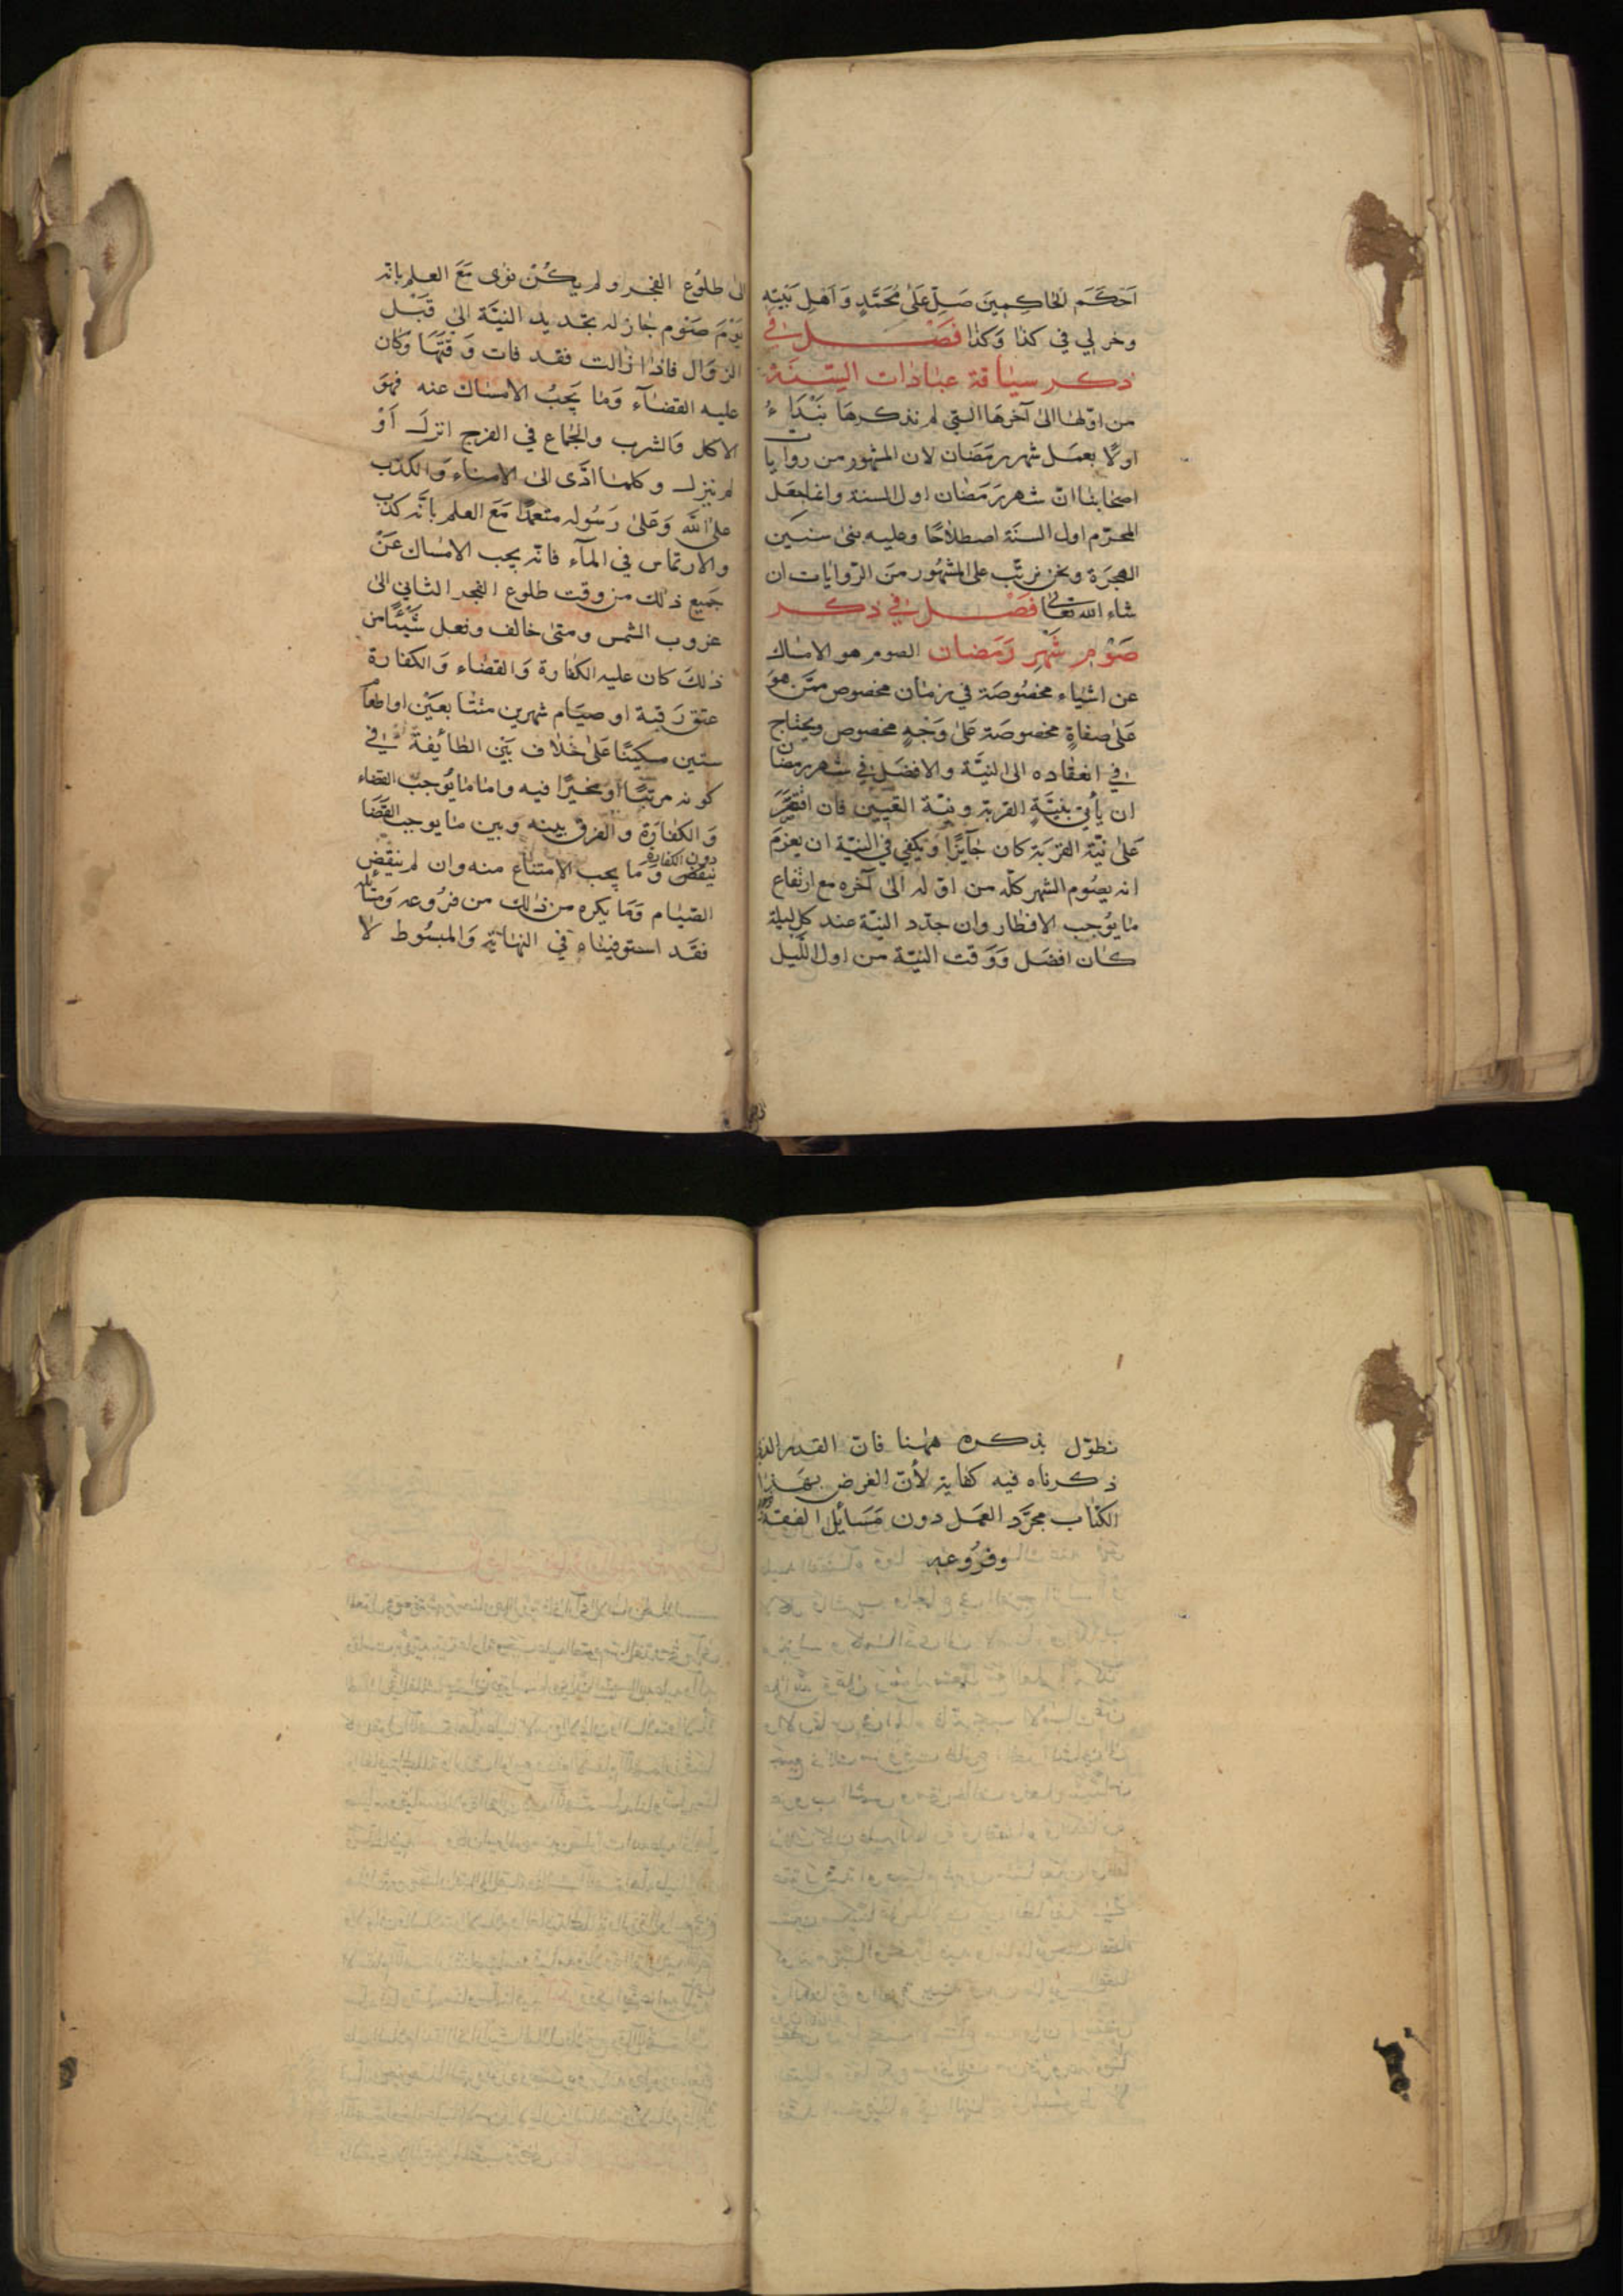 اَحكَمَ الحاكِمِينَ صَلِّ عَلىٰ مُحَمَّدٍ وَاَهلِ بَيتِهِ
وخر لي في كذا وَكذا فَصْــل في
ذكر سياقة عبادات السَّنَة
من اوّلها الىٰ آخرهَا التي لم نذكرهَا نَبْدَاءُ
اولًا بعمَل شهر رمَضَان لان المشهور من روايات
اصحَابنا انّ شهر رَمَضان اول السنة وانما جعَل
المحرّم اول السنَة اصطلاحًا وعليه بنى سنين
الهجرَة ونحن نرتّب على المشهُور منَ الرّوايَات ان
شاء الله تعالى فَصْــل في ذكر
صَوْمِ شَهْرِ رَمَضان الصوم هو الامسَاك
عن اشياء مخصُوصَة في زمَان مخصوص ممّن هوَ
عَلىٰ صفاةٍ مخصوصَة عَلىٰ وَجْهٍ مخصوص ويحتاج
في انعقاده الى النيَّة والافضَل في شهر رمضان
ان يأتي بنيَّةِ القربة ونيّة التعيين فان اقتصَرَ
عَلىٰ نيّة القربَة كان جَآئزًا ويكفي في النيّة ان يعزمَ
انه يصُوم الشهر كلّه من اوّله الىٰ آخره مع ارتفاع
مَا يوُجب الافطار وان جدّد النيّة عند كل ليلة
كان افضَل وَوَقت النيّة من اول اللّيل
الىٰ طلوُع الفجر ولم يكُنْ نوٰى مَعَ العلم بانّه
يَوْمَ صَوْم جَاز له تجديد النيَّة الىٰ قَبْل
الزوَال فاذا زالت فقد فات وَقتُهَا وَكان
عليه القضَآء وَمَا يَجبُ الامسَاك عنه فهوَ
الاكل وَالشرب والجمَاع في الفرج انزل اَوْ
لم ينزل وكلما ادّى الىٰ الامناء وَالكذب
علىٰ الله وَعَلىٰ رَسُوله متعمّدًا مَعَ العلم بانَّه كذب
والارتماس في المآء فانّه يجب الامسَاك عَنْ
جَميع ذلك من وقت طلوع الفجر الثاني الىٰ
غروب الشمس ومتىٰ خالف وفعل شَيْئًا من
ذلكَ كان عليه الكفارة وَالقضاء وَالكفارة
عتق رَقبة او صيَام شهرين متتابعَيْن او اطعام
ستين مسكينًا عَلىٰ خلاف بَيْن الطائِفة في
كونه مرتبًّا اوْ مخيرًا فيه وامّا ما يوُجبُ القضاء
وَ الكفارَة والفرق بينه وبين مَا يوجب القضَا
دون الكفارة
ينقض وَما يجب الامتناع منه وان لم ينقض
الصّيام وَمَا يكره من ذلك من فرُوعه وَمسَائله
فقَد استوفيناه في النهَاية وَالمبسُوط لا
نطوّل بذكره ههنا فانّ القدر الذي
ذكرناه فيه كفاية لأنّ الغرض بهَذا
الكتاب مجرَّد العمَل دون مَسَائِل الفقه
وفرُوعهِ